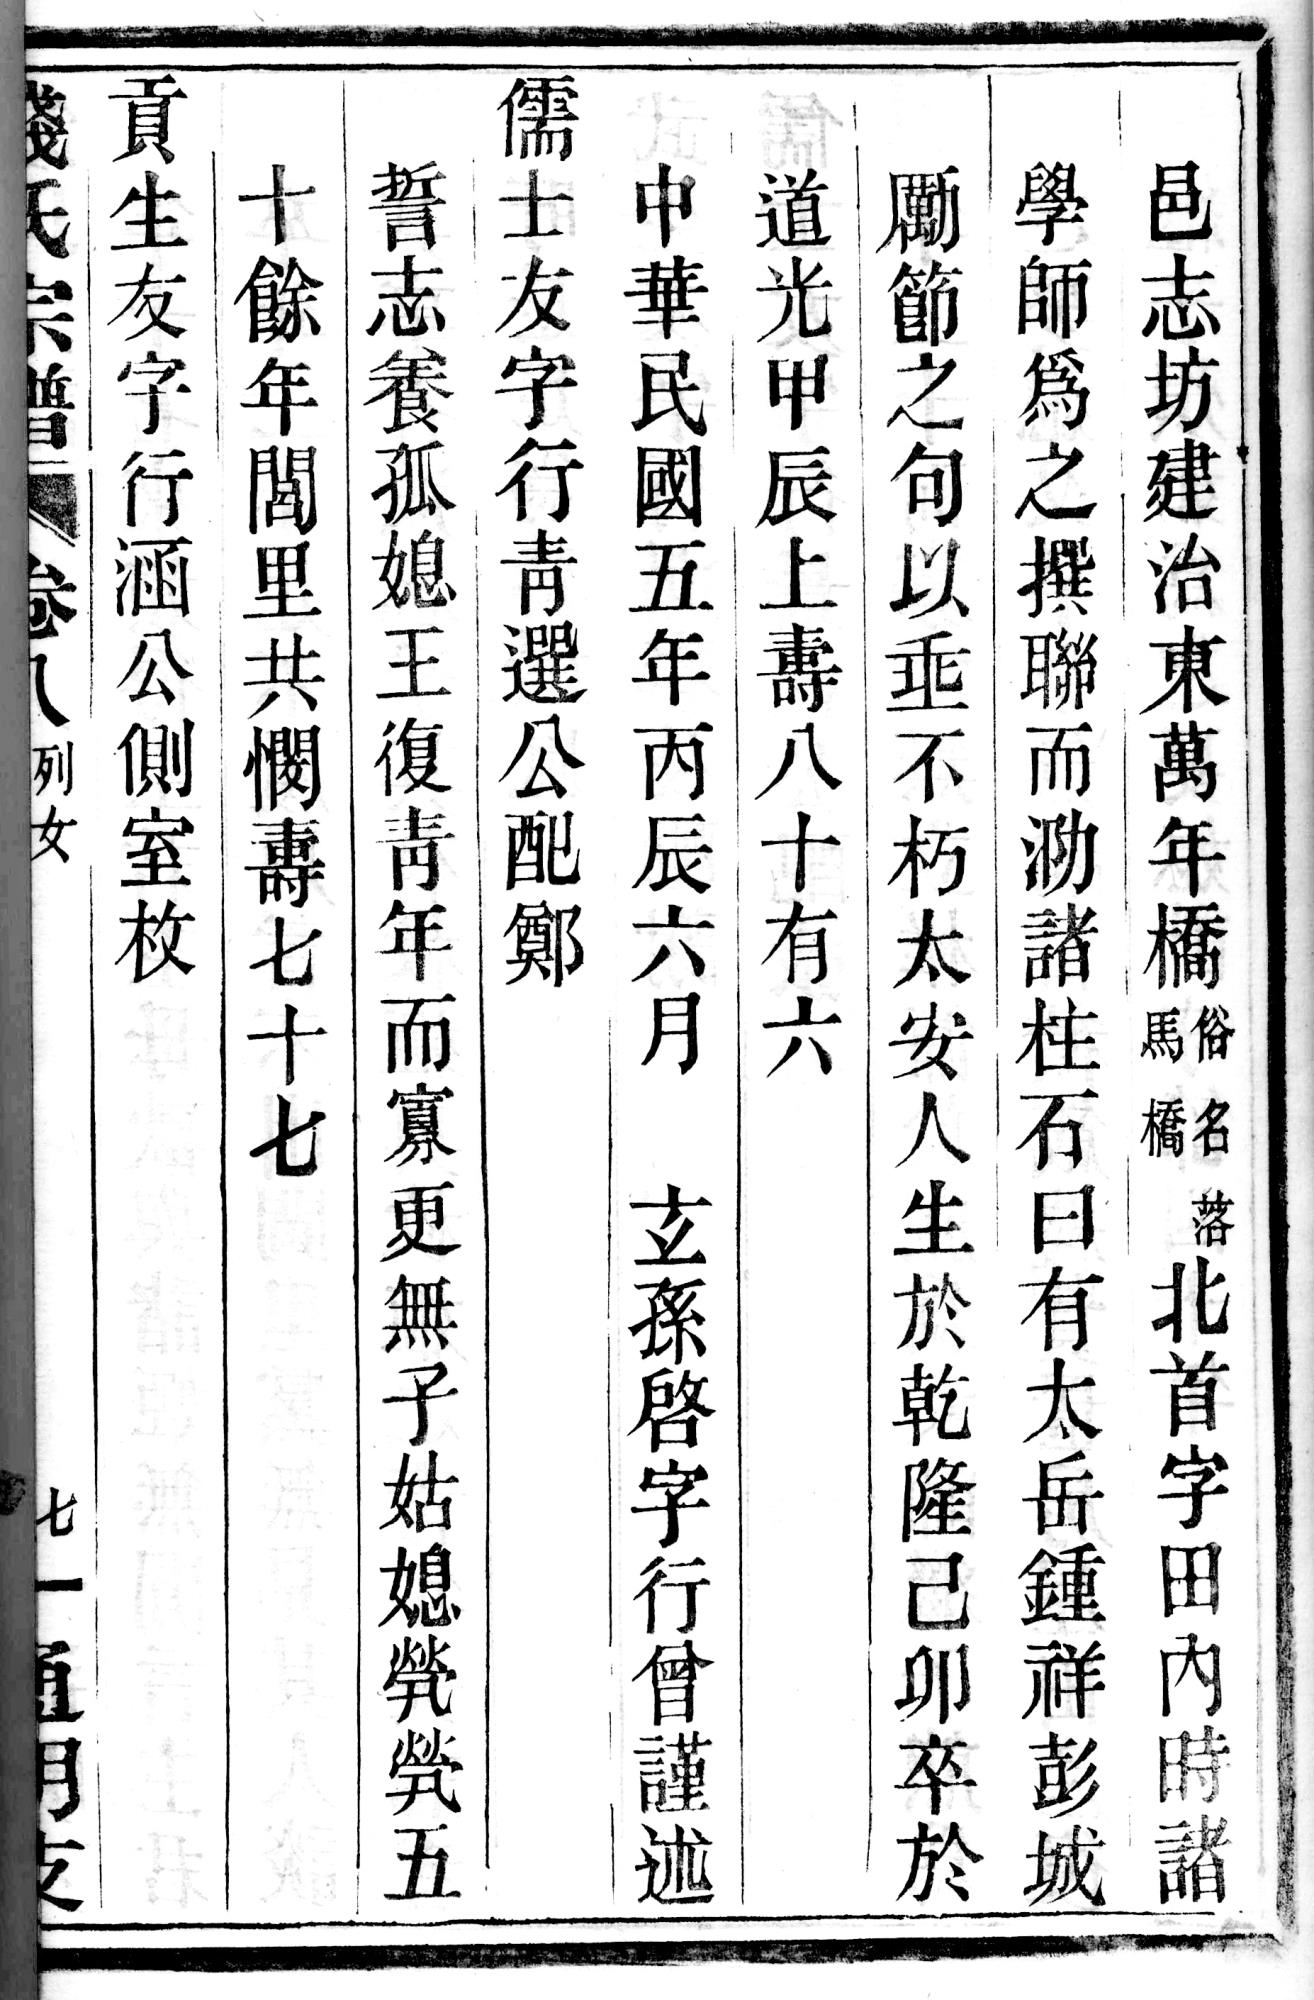 邑志坊建治東萬年橋俗名落馬橋北首字田內時諸
學師爲之撰聯而泐諸柱石曰有太岳鍾祥彭城
勵節之句以垂不朽太安人生於乾隆己卯卒於
道光甲辰上壽八十有六
中華民國五年丙辰六月　玄孫啓字行曾謹述
儒士友字行青選公配鄭
誓志養孤媳王復青年而寡更無子姑媳煢煢五
十餘年閭里共憫壽七十七
貢生友字行涵公側室枚
錢氏宗譜　卷八　列女　七一　通明支